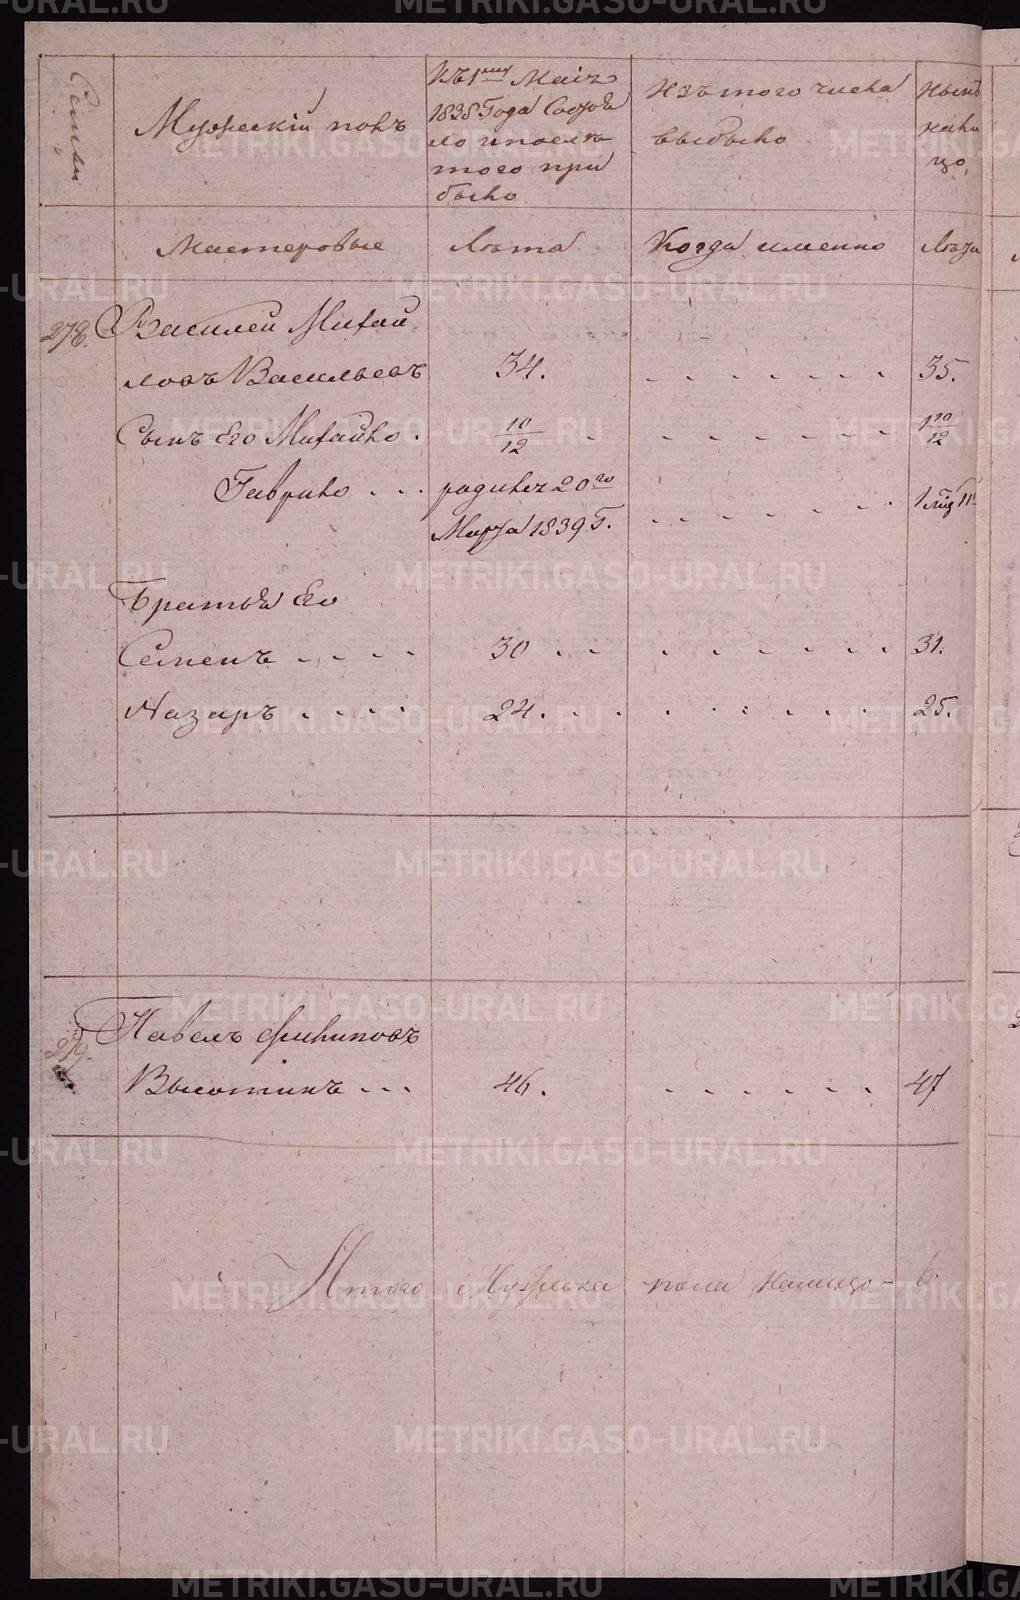 Семьи
Мужескій полъ
Къ 1му Маія
1838 Года Состоя
ло и послѣ
того при
было
Изъ того числа
выбыло
Нынѣ
нали
цо
Мастеровые
Лѣта
Когда именно
Лѣта
278.
Василей Михай
ловъ Васильевъ
34.
35.
Сынъ Его Михайло
10/12
1 10/12
Гаврило
родился 20го
Марта 1839 Г.
Братья Его
Семенъ
30
31.
Назаръ
24.
25.
279.
Павелъ Филиповъ
46.
47
Итого Мужеска пола налицо - 6.
METRIKI.GASO-URAL.RU